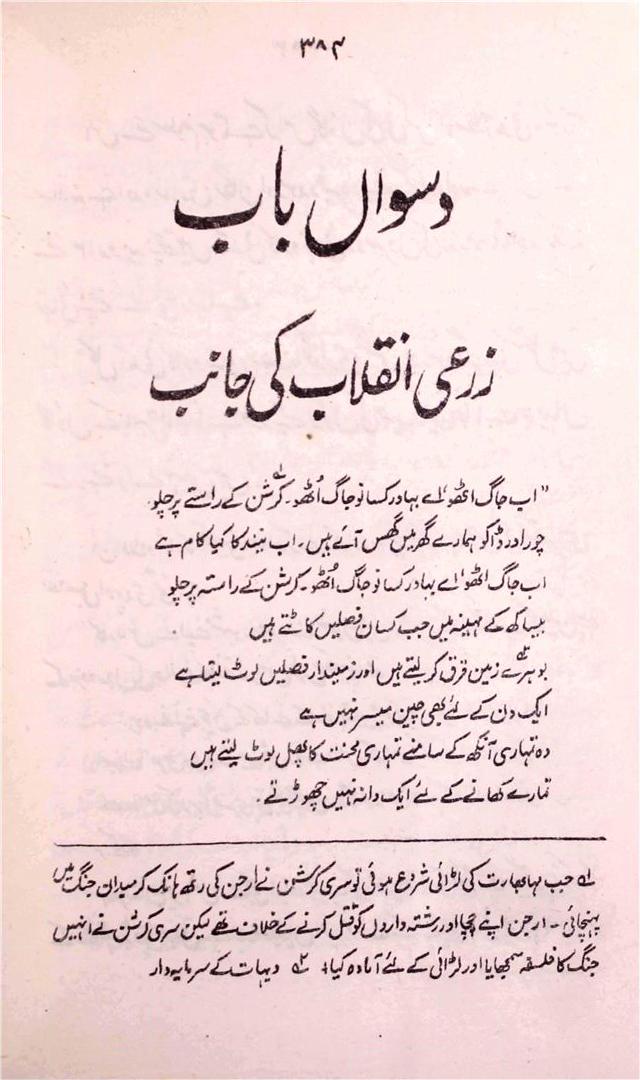 ۳۸۴
دسواں باب
زرعی انقلاب کی جانب
"اب جاگ اٹھو اے بہادر کسانو جاگ اُٹھو۔ کرشن لہ کے راستے پر چلو۔
چور اور ڈاکو ہمارے گھر میں گھس آئے ہیں۔ اب نیند کا کیا کام ہے
اب جاگ اٹھو اے بہادر کسانو جاگ اُٹھو۔ کرشن کے راستہ پر چلو
بیساکھ کے مہینہ میں جب کسان فصلیں کاٹتے ہیں۔
بوہرے ۲ زمین قرق کر لیتے ہیں اور زمیندار فصلیں لوٹ لیتا ہے
ایک دن کے لئے بھی چین میسر نہیں ہے
وہ تمہاری آنکھ کے سامنے تمہاری محنت کا پھل لوٹ لیتے ہیں
تمارے کھانے کے لئے ایک دانہ نہیں چھوڑتے۔
لہ جب مہابھارت کی لڑائی شروع ہوئی تو سری کرشن نے ارجن کی رتھ ہانک کر میدان جنگ میں
پہنچائی۔ ارجن اپنے چچا اور رشتہ داروں کو قتل کرنے کے خلاف تھے لیکن سری کرشن نے انہیں
جنگ کا فلسفہ سمجھایا اور لڑائی کے لئے آمادہ کیا + ۲ دیہات کے سرمایہ دار